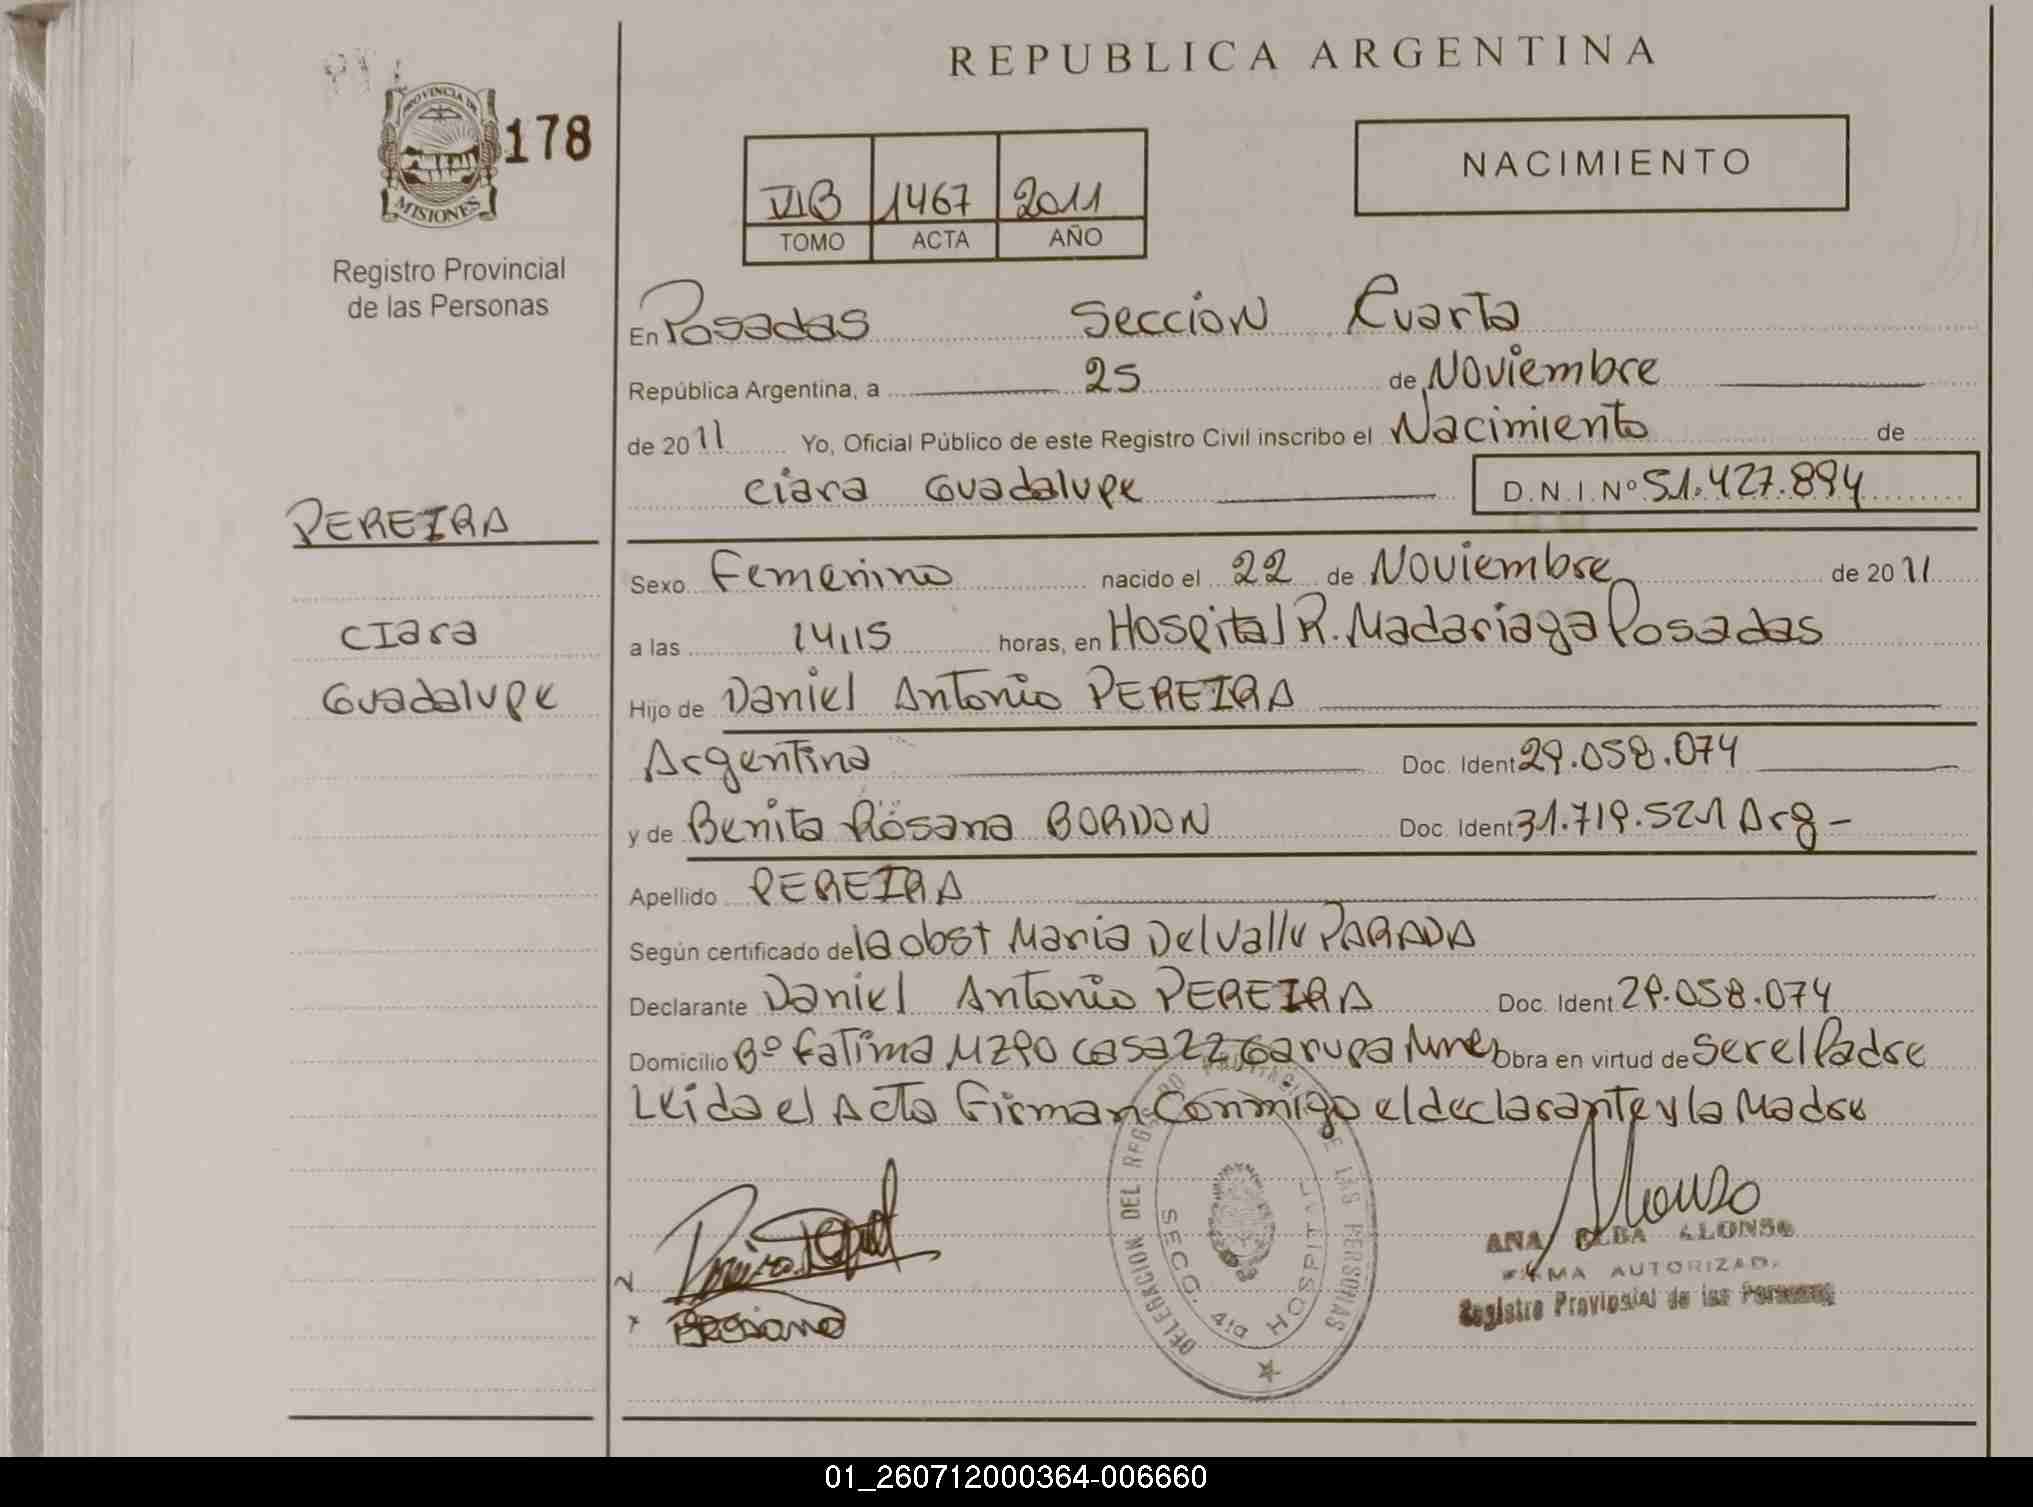 REPUBLICA ARGENTINA
PROVINCIA DE
MISIONES
178
Registro Provincial
de las Personas
VIB 1467 2011
TOMO ACTA AÑO
NACIMIENTO
En Posadas Seccion Cuarta
República Argentina, a 25 de Noviembre
de 2011 Yo, Oficial Público de este Registro Civil inscribo el Nacimiento de
Ciara Guadalupe D.N.I. Nº 51.427.894
PEREIRA
Ciara
Guadalupe
Sexo Femenino nacido el 22 de Noviembre de 2011
a las 14,15 horas, en Hospital R. Madariaga Posadas
Hijo de Daniel Antonio PEREIRA
Argentina Doc. Ident 29.058.074
y de Benita Rosana BORDON Doc. Ident 31.719.521 Arg -
Apellido PEREIRA
Según certificado de la obst Maria Del Valle PARADA
Declarante Daniel Antonio PEREIRA Doc. Ident. 29.058.074
Domicilio Bº Fatima MZ90 casa22 Garupa Mnes Obra en virtud de ser el Padre
Leida el Acta Firman Conmigo el declarante y la Madre
DELEGACION DEL REGISTRO PROVINCIAL DE LAS PERSONAS
SECC. 4ta HOSPITAL
Alonso
ANA ELBA ALONSO
FIRMA AUTORIZADA
Registro Provincial de las Personas
01_260712000364-006660